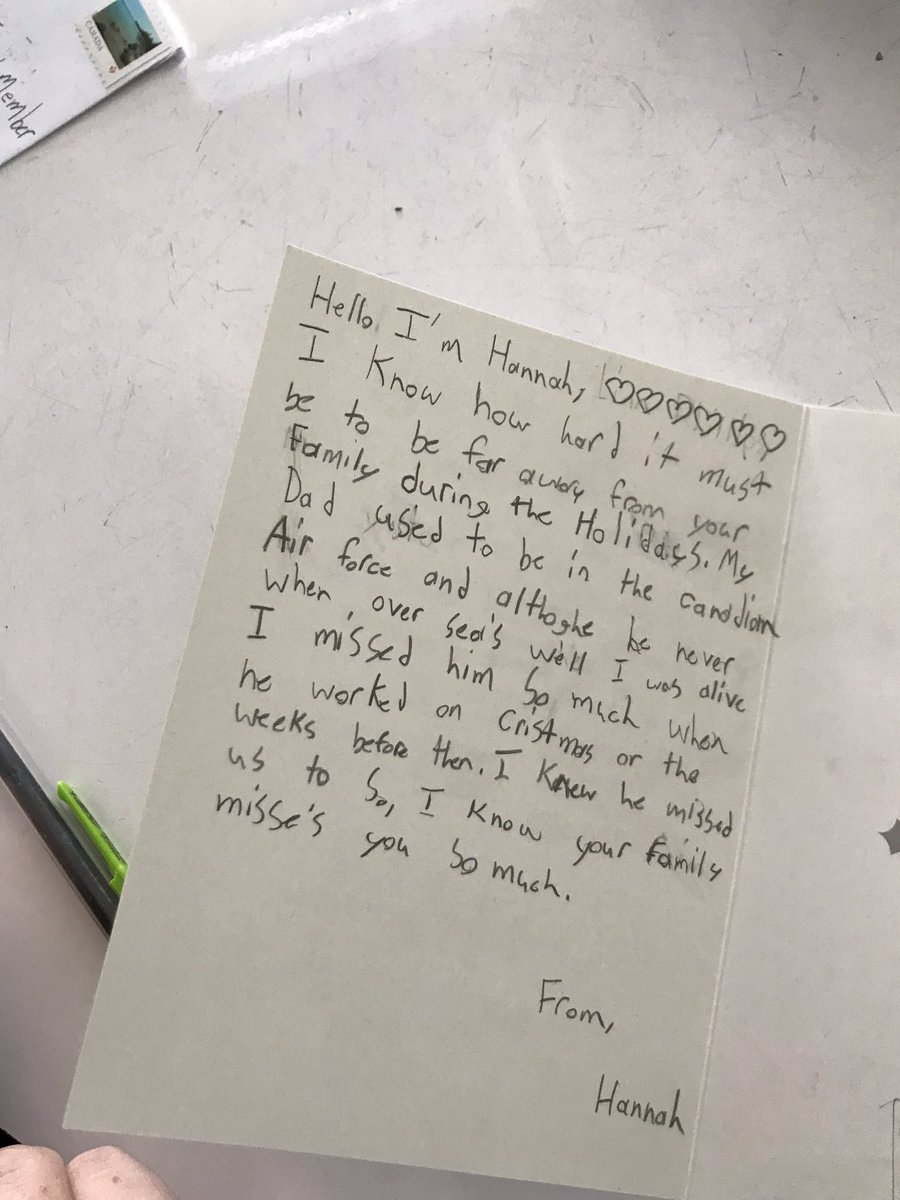 CANADA
Member
Hello I'm Hannah, ♡♡♡♡♡♡
I Know how hard it must
be to be far away from your
Family during the Holidays. My
Dad used to be in the canddian
Air force and althoghe he never
when over sea's well I was alive
I missed him so much when
he worked on Cristmas or the
weeks before then. I Knew he missed
us to So, I Know your family
misse's you so much.
From,
Hannah